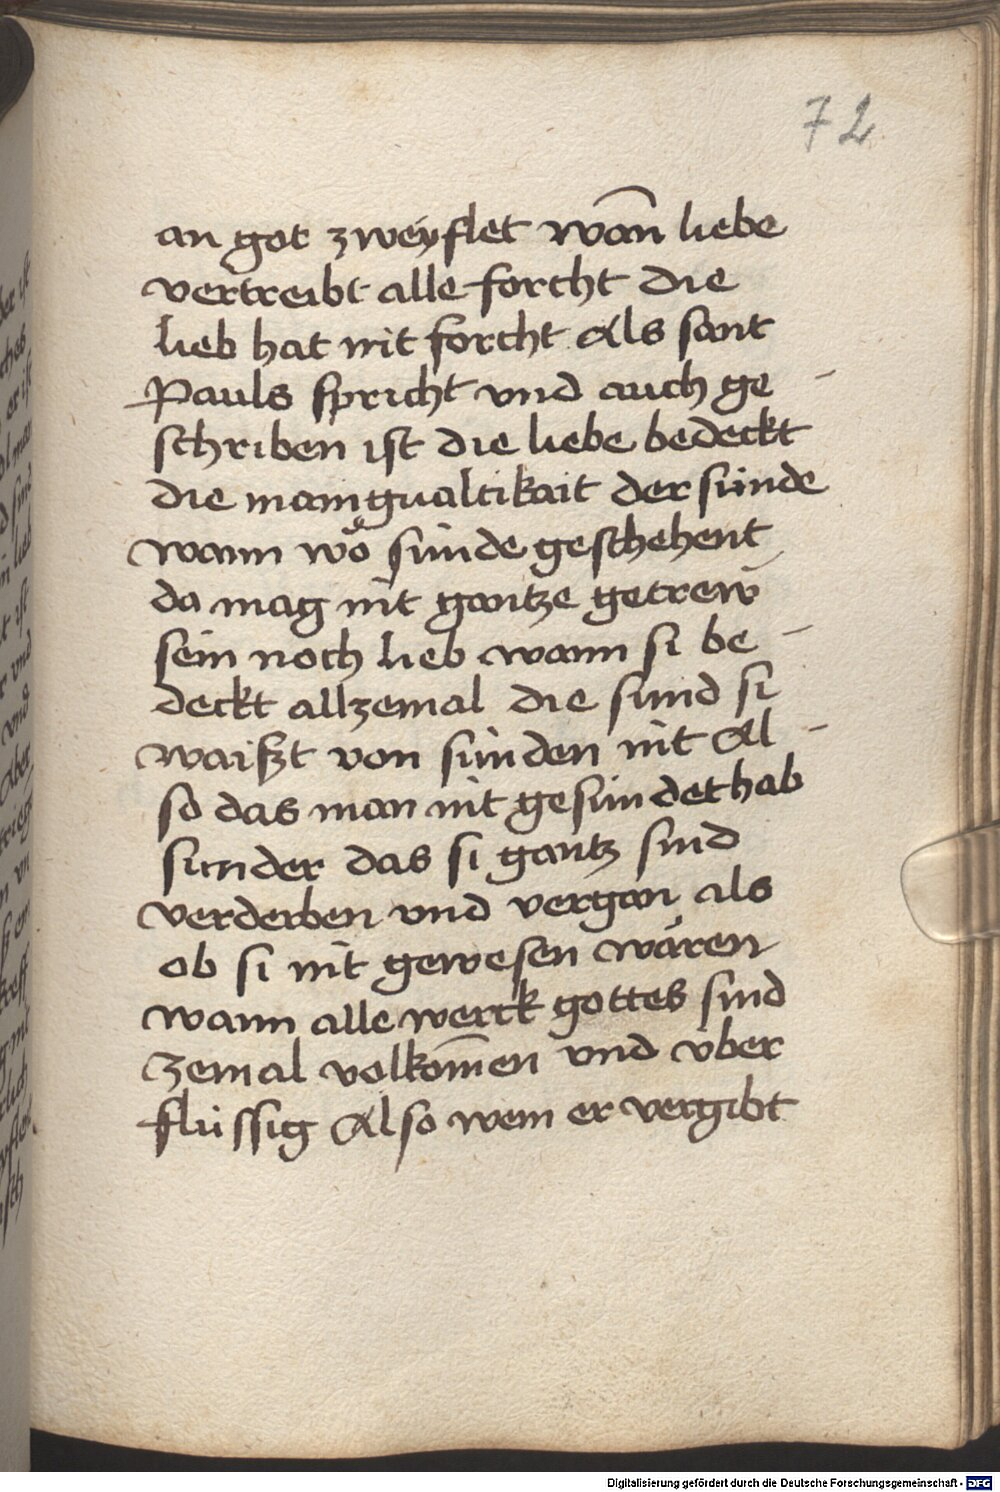 72
an got zweÿflet wan̄ liebe
vertreibt alle forcht die
lieb hat nit forcht Als sant
Pauls spricht vnd auch ge-
schriben ist die liebe bedeckt
die manigualtikait der sünde
wann wo sünde geschehent
da mag nit gantze getrew
sein noch lieb wann si be-
deckt allzemal die sünd si
waiszt von sünden nit Al-
so das man nit gesündet hab
sunder das si gantz sind
verderben vnd vergan als
ob si nit gewesen wären
wann alle werck gottes sind
zemal volkom̄en vnd über
flüssig Also wem er vergibt
Digitalisierung gefördert durch die Deutsche Forschungsgemeinschaft - DFG